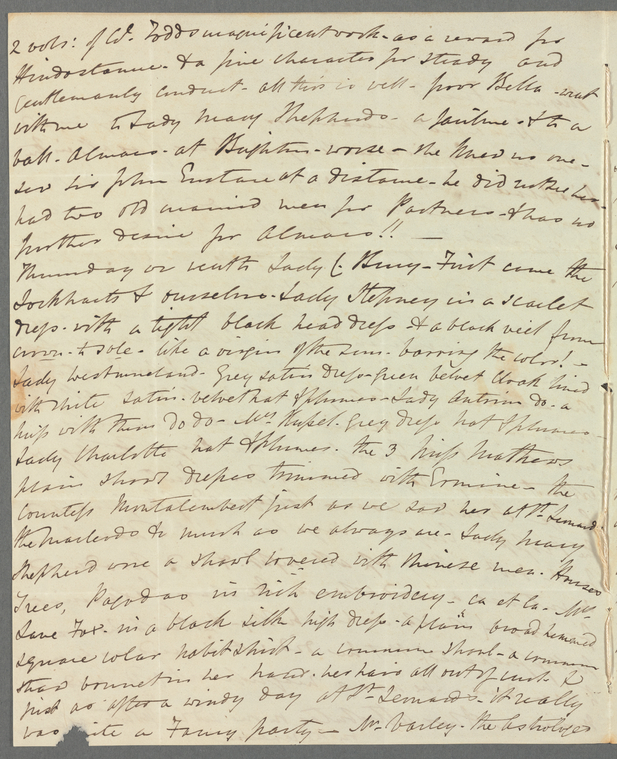 2 vols: of Cl. Todds magnificent work - as a reward for
Hindostanee - & a fine character for steady and
Gentlemanly conduct - all this is well - poor Bella - went
with me to Lady Mary Shepherds - a failure - & to a
ball - Almacs - at Brighton - worse - she knew no one -
saw Sir John Eustace at a distance - he did not see her -
had two old married men for Partners - & has no
further desire for Almacs!! -
Thursday we went Lady C. Bury - First came the
Lockharts & ourselves - Lady Stepney in a scarlet
dress - with a tight black head dress & a black veil from
crown - to sole - like a virgin of the sun - barring the color! -
Lady Westmoreland - Grey satin dress - green velvet cloak lined
with white satin - velvet hat & plumes - Lady Antrim do - a
Miss with them do do - Mrs Grey dress hat & plumes -
Lady Charlotte hat & plumes - the 3 Miss Mathews
plain shawl dresses trimmed with Ermine - the
Countess Montalembert just as we saw her at St. Leonards
the Macleods & much as we always are - Lady Mary
Shepherd wore a shawl covered with Chinese men - Houses
Trees, Pagodas in rich embroidery - ca et la - Mrs
Lane Fox - in a black silk high dress - a plain broad hemmed
square colar habit shirt - a common shawl - a common
straw bonnet in her hand - her hair all out of curl &
just as after a windy day at St. Leonards - it really
was quite a Fancy party - Mr Varley - the Astrologer